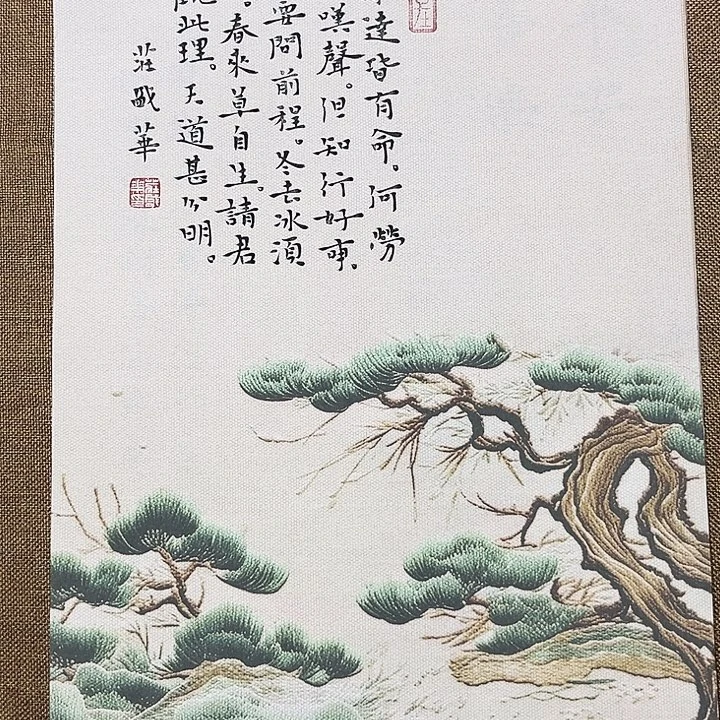 達皆有命。何勞
嘆聲。但知行好事。
要問前程。冬去冰須
。春來草自生。請君
此理。天道甚分明。
莊 華